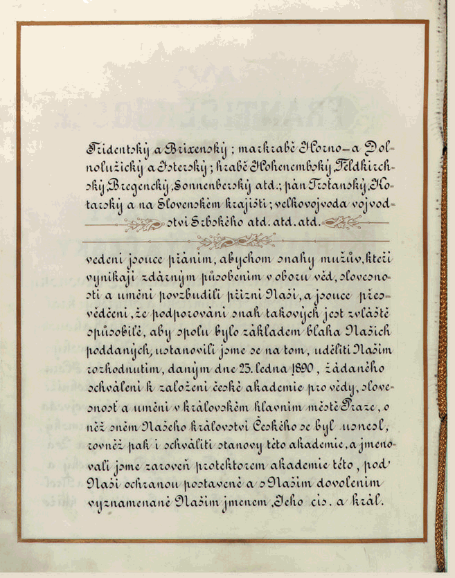 Tridentský a Brixenský; markrabě Horno–a Dol-
nolužický a Isterský; hrabě Hohenembský, Feldkirch-
ský, Bregencký, Sonnenberský atd.; pán Trstanský, Ko-
tarský a na Slovenském krajišti; velkovojvoda vojvod-
ství Srbského atd. atd. atd.
vedeni jsouce přáním, abychom snahy mužův, kteří
vynikají zdárným působením v oboru věd, slovesno-
sti a umění povzbudili přízní Naší, a jsouce pře-
svědčeni, že podporování snah takových jest zvláště
způsobilé, aby spolu bylo základem blaha Našich
poddaných, ustanovili jsme se na tom, uděliti Naším
rozhodnutím, daným dne 23. ledna 1890, žádaného
schválení k založení české akademie pro vědy, slove-
snost a umění v královském hlavním městě Praze, o
něž sněm Našeho království Českého se byl usnesl,
rovněž pak i schváliti stanovy této akademie, a jmeno-
vali jsme zároveň protektorem akademie této, pod
Naši ochranou postavené a s Naším dovolením
vyznamenané Naším jmenem, Jeho cís. a král.